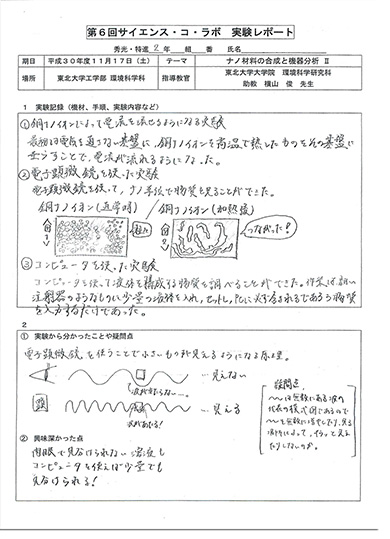 第6回サイエンス・コ・ラボ 実験レポート
秀光・特進 2年 組 番 氏名
期日 平成30年11月17日(土) テーマ ナノ材料の合成と機器分析 Ⅱ
場所 東北大学工学部 環境科学科 指導教官 東北大学大学院 環境科学研究科
助教 横山 俊 先生
1 実験記録(機材、手順、実験内容など)
①銅ナノイオンによって電流を流せるようになる実験
最初は電気を通さない基盤に、銅ナノイオンを高温で熱したものをその基盤に
することで、電流が流れるようになった。
②電子顕微鏡を使った実験
電子顕微鏡を使って、ナノ単位で物質を見ることができた。
銅ナノイオン(通常時) 銅ナノイオン(加熱後)
つながった!
③コンピュータを使った実験
コンピュータを使って液体を構成する物質を調べることができた。作業は細い
注射器のようなものに少量の液体を入れ、セットし、PCに含まれるであろう物質
を入力するだけであった。
2
① 実験から分かったことや疑問点
電子顕微鏡を使うことで小さいものが見えるようになる原理。
…見えない
波が当たらない…
…見える
波が当たる!
疑問点
は無数にある波の
② 興味深かった点
肉眼で見分けられない溶液も
コンピュータを使えば少量でも
見分けられる!